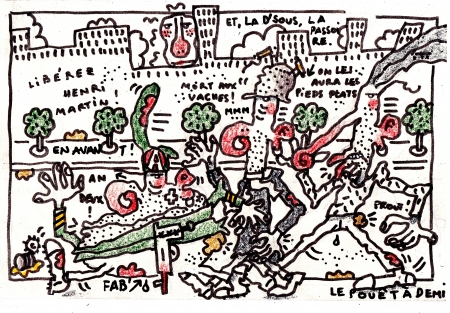 ET, LA D'SOUS, LA
PASSOIRE.
LIBÉREZ
HENRI
MARTIN !
MORT AUX
VACHES !
MMM
ON LES
AURA LES
PIEDS PLATS
EN AVANT !
AN
DEUX
!
PROUT
FAB'
LE POUET À DEMI